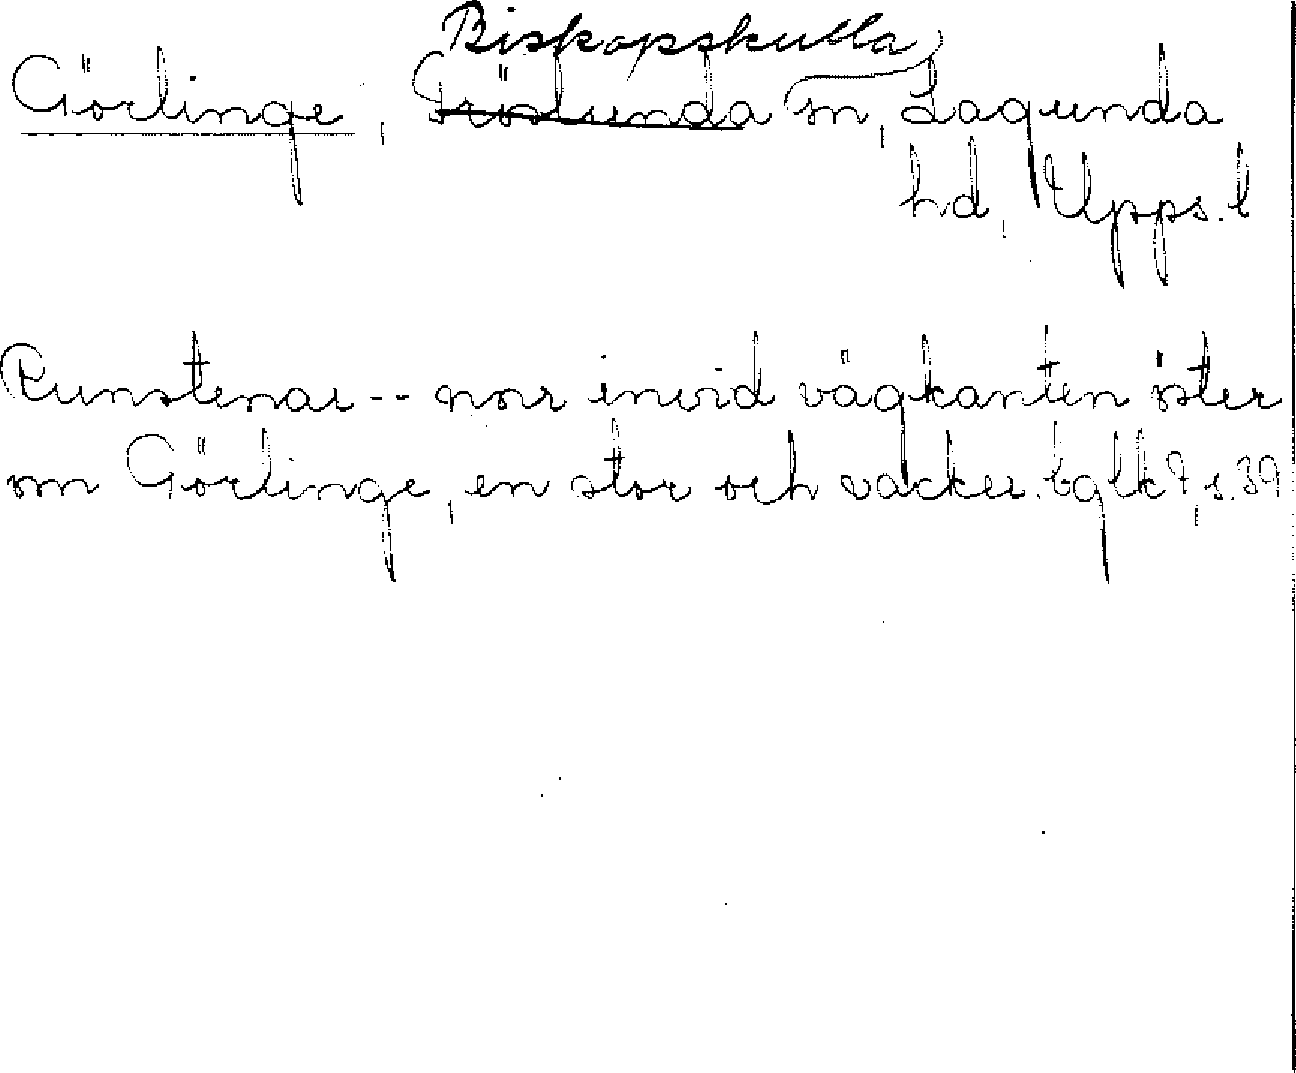 Biskopskulla
Görlinge, Fröslunda sn, Lagunda
hd, Upps. l
Runstenar -- norr invid vägkanten öster
om Görlinge, en stor och vacker. bglk 7, s. 39